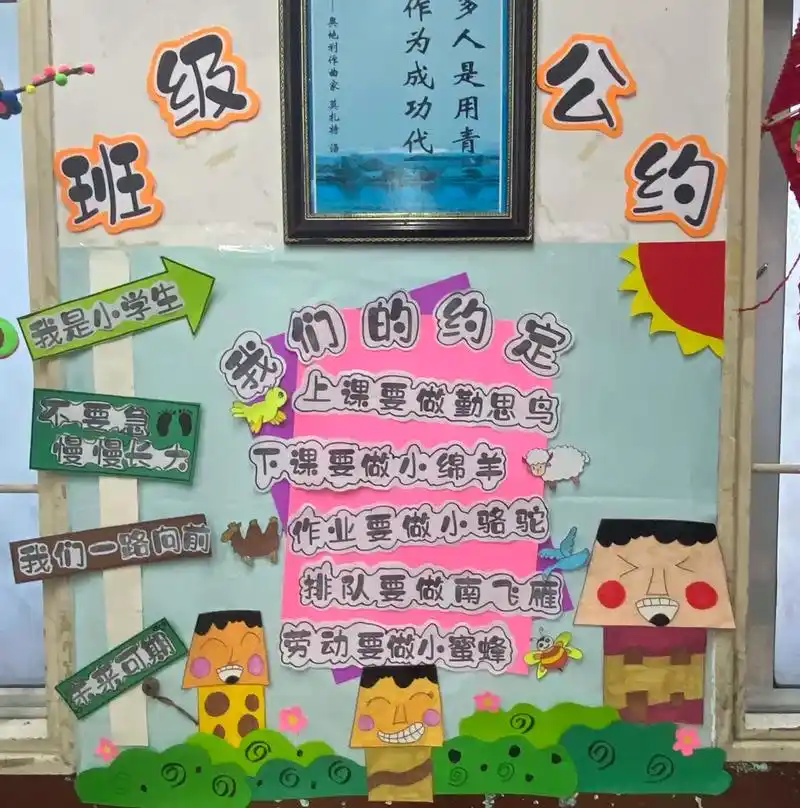 班级公约
多人是用青
作为成功代
——奥地利作曲家 莫扎特 语
我是小学生
不要急
慢慢长大
我们一路向前
未来可期
我们的约定
上课要做勤思鸟
下课要做小绵羊
作业要做小骆驼
排队要做南飞雁
劳动要做小蜜蜂